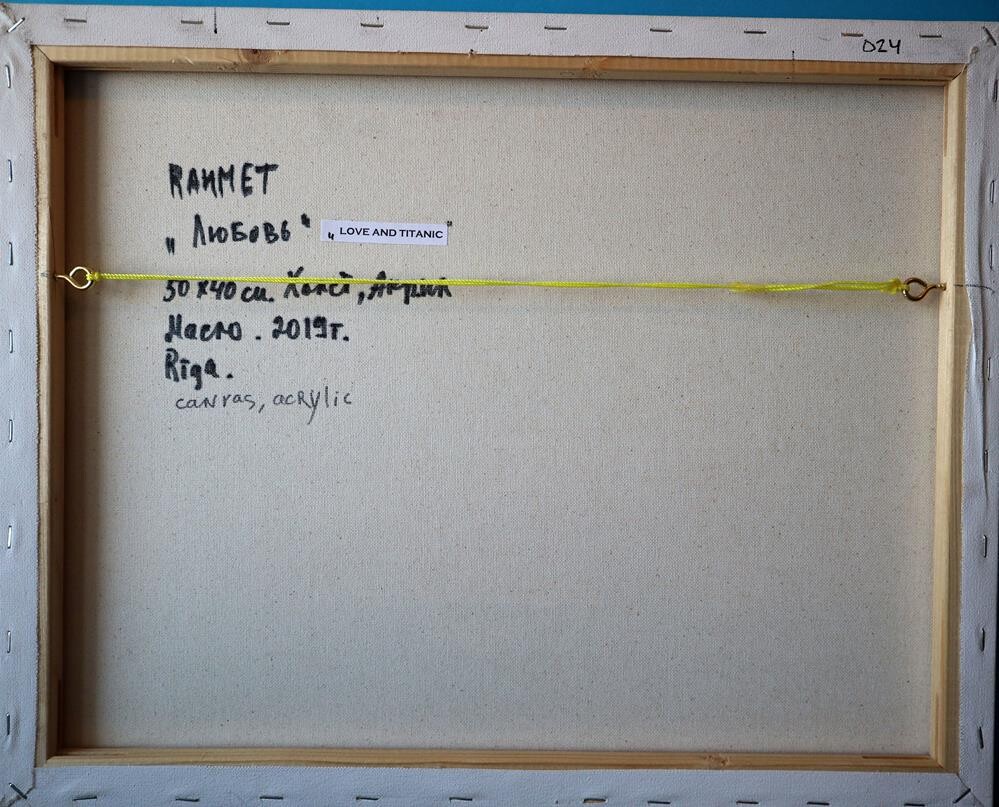 024
RAHMET
„Любовь“ „LOVE AND TITANIC"
50x40 см. Холст, Акрил
Масло. 2019г.
Rīga.
canvas, acrylic